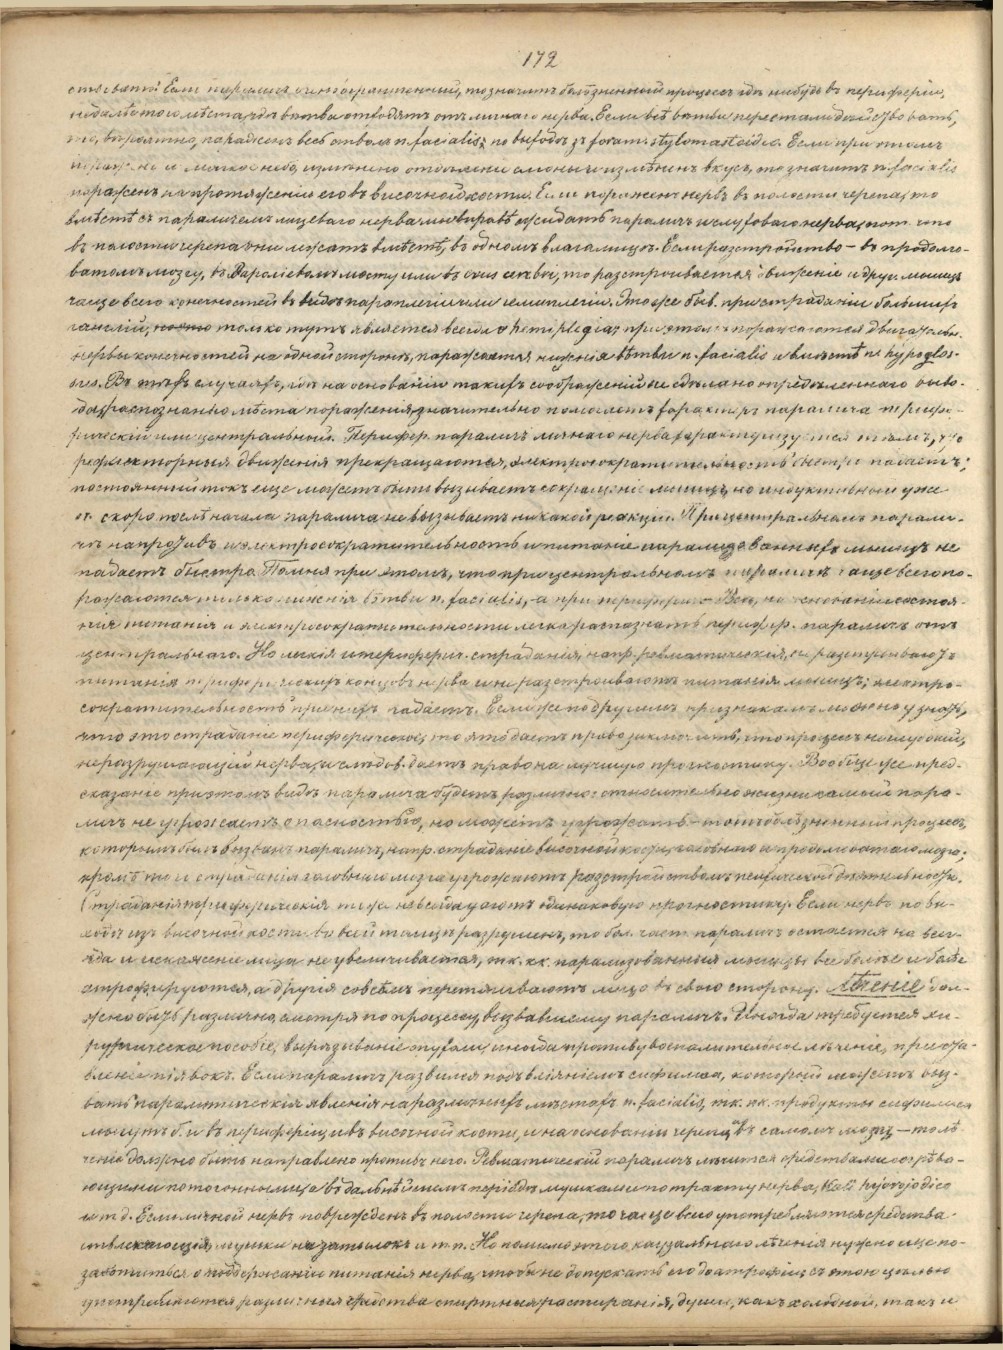 172
Если паралич периферический, то значит болѣзненный процессъ гдѣ нибудь въ периферіи,
недалеко того мѣста, гдѣ вѣтви отходятъ отъ личнаго нерва. Если всѣ вѣтви перестали дѣйствовать,
то, вѣроятно, пораженъ весь стволъ n. facialis по выходѣ изъ foram. stylomastoidea. Если при этомъ
и мягкое небо, измѣнено отдѣленіе слюны и измѣненъ вкусъ, то значитъ n. facialis
пораженъ на протяженіи его въ височной кости. Если пораженъ нервъ въ полости черепа, то
вмѣстѣ съ параличемъ лицеваго нерва мы вправѣ ожидать паралич и слуховаго нерва, пот. что
въ полости черепа они лежатъ вмѣстѣ, въ одномъ влагалищѣ. Если разстройство – въ продолго-
ватомъ мозгу, въ Вароліевомъ мосту или въ crus cerebri, то разстроивается движеніе и друг. мышцъ
чаще всего конечностей въ видѣ параплегіи или гемиплегіи. Это же быв. при страданіи большихъ
ганглій, только тутъ является всегда hemiplegia; при этомъ поражаются двигательн.
нервы конечностей на одной сторонѣ, поражается нижняя вѣтвь n. facialis и вмѣстѣ n. hypoglos-
sus. Въ тѣхъ случаяхъ, гдѣ на основаніи такихъ соображеній не сдѣлано опредѣленнаго выво-
да, распознанію мѣста пораженія значительно помогаетъ характеръ паралича периф-
рическій или центральный. Перифер. параличъ личнаго нерва характеризуется тѣмъ, что
рефлекторныя движенія прекращаются, электросократительность быстро падаетъ;
постоянный токъ еще можетъ быть вызываетъ сокращеніе мышцъ, но индуктивный уже
оч. скоро послѣ начала паралича не вызываетъ никакой реакціи. При центральномъ парали-
чѣ напротивъ и электросократительность и питаніе парализованныхъ мышцъ не
падаетъ быстро. Помня при этомъ, что при центральномъ параличѣ чаще всего по-
ражаются только нижнія вѣтви n. facialis, а при перифери – Всѣ, на основаніи состоя-
нія питанія и электросократительности легко распознать перифер. параличъ отъ
центральнаго. Но легкія и периферич. страданія, напр. ревматическія, не разстроиваютъ
питанія периферическихъ концовъ нерва и не разстроиваютъ питанія мышцъ; электро-
сократительность при нихъ падаетъ. Если же по другимъ признакамъ можно узнать,
что это страданіе периферическое, то это даетъ право заключить, что процессъ неглубокій,
неразрушающій нерва, и слѣдов. даетъ право на лучшую прогностику. Вообще же пред-
сказаніе при этомъ видѣ паралича будетъ различно: относительно жизни самый пара-
личъ не угрожаетъ опасностью, но можетъ угрожать – тотъ болѣзненный процессъ,
которымъ былъ вызванъ параличъ, напр. страданіе височной кости, головнаго и продолговатаго мозга;
кромѣ того страданія головнаго мозга угрожаютъ разстройствомъ психической дѣятельности.
Страданія периферическія тоже не всегда даютъ одинаковую прогностику. Если нервъ по вы-
ходѣ изъ височной кости во всей толщѣ разрушенъ, то бол. част. параличъ остается на все-
гда и искаженіе лица не увеличивается, т.к. кк. парализованныя мышцы все болѣе и болѣе
атрофируются, а другія совсѣмъ перетягиваютъ лицо въ свою сторону. Лѣченіе дол-
жно быть различно, смотря по процессу, вызвавшему параличъ. Иногда требуется хи-
рургическое пособіе, вырѣзываніе опухоли, иногда противувоспалительное лѣченіе, приста-
вленіе піявокъ. Если параличъ развился подъ вліяніемъ сифилиса, который можетъ выз-
вать паралитическія явленія на различныхъ мѣстахъ n. facialis, т.к. кк. продукты сифилиса
могутъ б. и въ периферіи, и въ височной кости, и на основаніи черепа, и въ самомъ мозгу, – то лѣ-
ченіе должно быть направлено противъ него. Ревматическій параличъ лѣчится средствами согрѣва-
ющими, потогонными, а въ дальнѣйшемъ періодѣ мушками по тракту нерва, Kali hydrojodico
и т.д. Если личной нервъ поврежденъ въ полости черепа, то чаще всего употребляются средства
отвлекающія, мушки на затылокъ и т.п. Но помимо этого каузальнаго лѣченія нужно еще по-
заботиться о поддержаніи питанія нерва, чтобы не допускать его до атрофіи; съ этою цѣлью
употребляются различныя средства: спиртныя растиранія, души, какъ холодной, такъ и